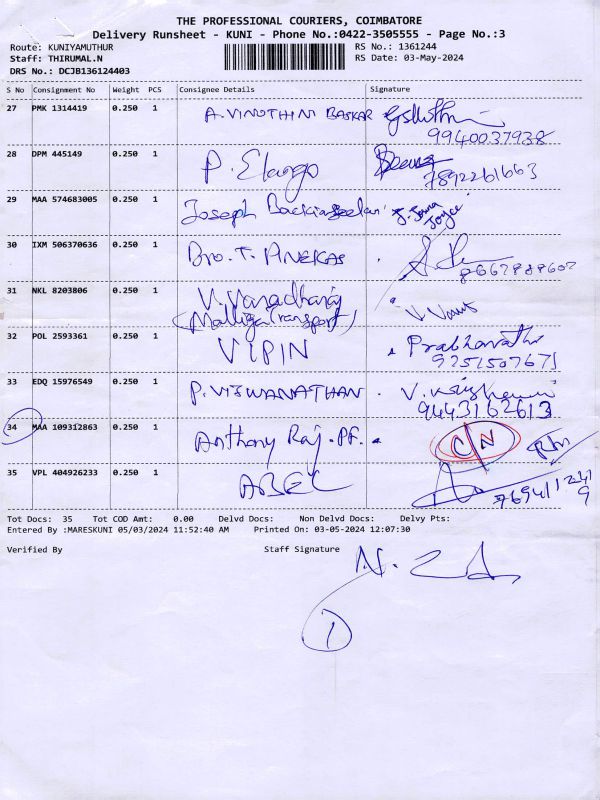 THE PROFESSIONAL COURIERS, COIMBATORE
Delivery Runsheet - KUNI - Phone No.:0422-3505555 - Page No.:3
Route: KUNIYAMUTHUR RS No.: 1361244
Staff: THIRUMAL.N RS Date: 03-May-2024
DRS No.: DCJB136124403
S No Consignment No Weight PCS Consignee Details Signature
27 PMK 1314419 0.250 1 A. VINOTHINI BASKAR
9940037938
28 DPM 445149 0.250 1 P. Elango
7892261663
29 MAA 574683005 0.250 1 Joseph
Joyce
30 IXM 506370636 0.250 1 Bro. T.
31 NKL 8203806 0.250 1 V. Varadharaj
(Malliga Transport)
32 POL 2593361 0.250 1 VIPIN Prabhavathi
9251507671
33 EDQ 15976549 0.250 1 P. VISWANATHAN
9443162613
34 MAA 109312863 0.250 1 Anthony Raj. PF. C/N
35 VPL 404926233 0.250 1 ABEL
Tot Docs: 35 Tot COD Amt: 0.00 Delvd Docs: Non Delvd Docs: Delvy Pts:
Entered By :MARESKUNI 05/03/2024 11:52:40 AM Printed On: 03-05-2024 12:07:30
Verified By Staff Signature
1